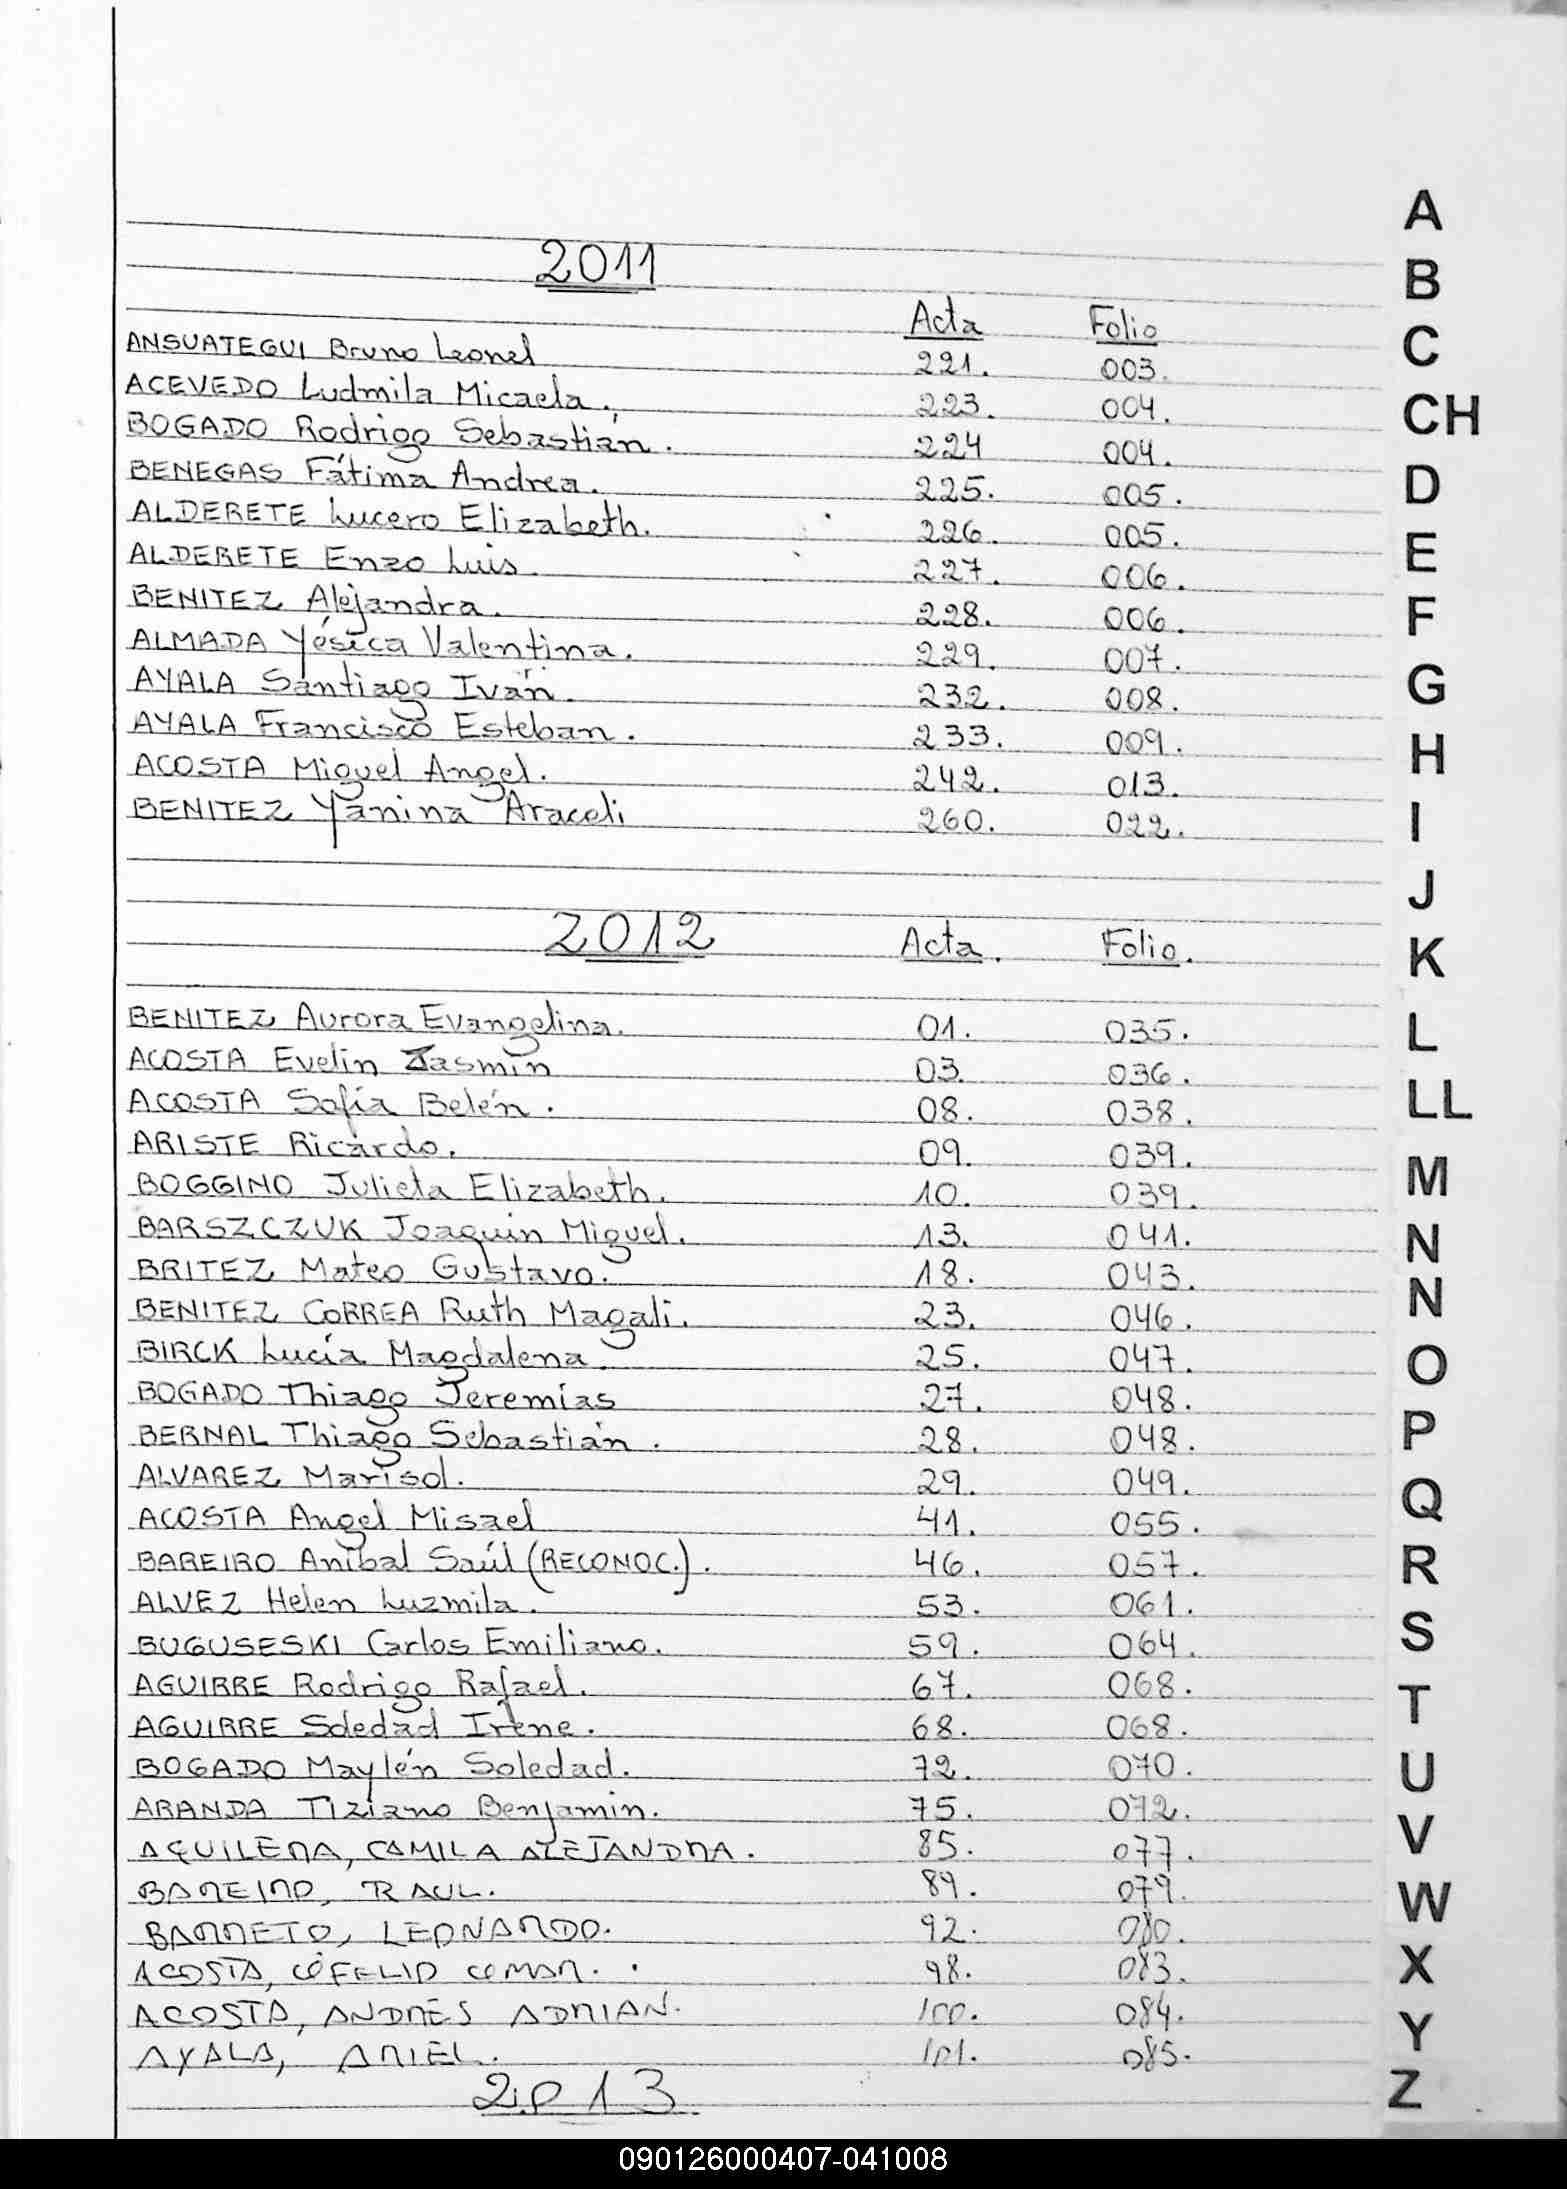 2011
Acta Folio
ANSUATEGUI Bruno Leonel 221. 003.
ACEVEDO Ludmila Micaela. 223. 004.
BOGADO Rodrigo Sebastián. 224 004.
BENEGAS Fátima Andrea. 225. 005.
ALDERETE Lucero Elizabeth. 226. 005.
ALDERETE Enzo Luis 227. 006.
BENITEZ Alejandra. 228. 006.
ALMADA Yésica Valentina. 229. 007.
AYALA Santiago Iván. 232. 008.
AYALA Francisco Esteban. 233. 009.
ACOSTA Miguel Angel. 242. 013.
BENITEZ Yanina Araceli 260. 022.
2012 Acta. Folio.
BENITEZ Aurora Evangelina. 01. 035.
ACOSTA Evelin Jasmín 03. 036.
ACOSTA Sofía Belén. 08. 038.
ARISTE Ricardo. 09. 039.
BOGGINO Julieta Elizabeth. 10. 039.
BARSZCZUK Joaquin Miguel. 13. 041.
BRITEZ Mateo Gustavo. 18. 043.
BENITEZ CORREA Ruth Magali. 23. 046.
BIRCK Lucía Magdalena. 25. 047.
BOGADO Thiago Jeremías 27. 048.
BERNAL Thiago Sebastián. 28. 048.
ALVAREZ Marisol. 29. 049.
ACOSTA Angel Misael 41. 055.
BAREIRO Aníbal Saúl (RECONOC.). 46. 057.
ALVEZ Helen Luzmila. 53. 061.
BUGUSESKI Carlos Emiliano. 59. 064.
AGUIRRE Rodrigo Rafael. 67. 068.
AGUIRRE Soledad Irene. 68. 068.
BOGADO Maylén Soledad. 72. 070.
ARANDA Tiziano Benjamin. 75. 072.
AQUILERA, CAMILA ALEJANDRA. 85. 077.
BAREIRO, RAUL. 89. 079.
BARRETO, LEONARDO. 92. 080.
ACOSTA, 98. 083.
ACOSTA, ANDRÉS ADRIAN. 100. 084.
AYALA, ARIEL. 101. 085.
2013
A
B
C
CH
D
E
F
G
H
I
J
K
L
LL
M
N
N
O
P
Q
R
S
T
U
V
W
X
Y
Z
090126000407-041008